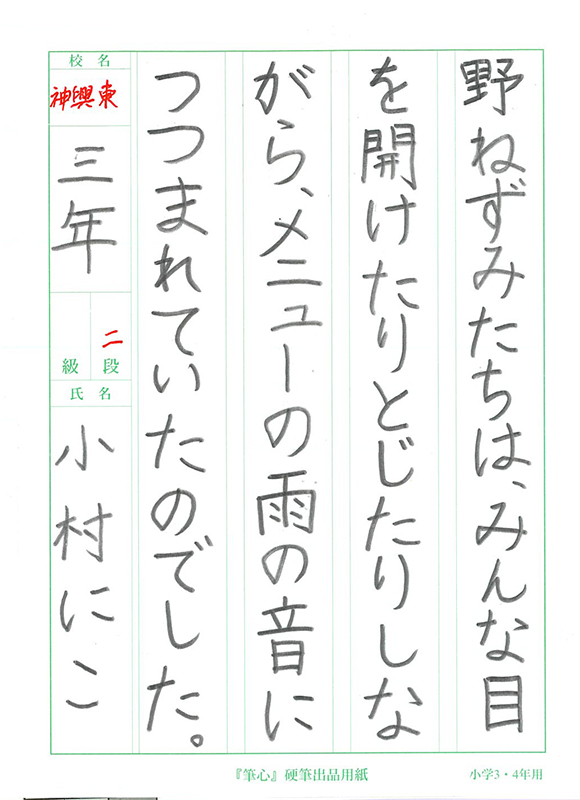 野ねずみたちは、みんな目
を開けたりとじたりしな
がら、メニューの雨の音に
つつまれていたのでした。
校名
神興東
三年
二
段
級
氏名
小村にこ
『筆心』硬筆出品用紙
小学3・4年用